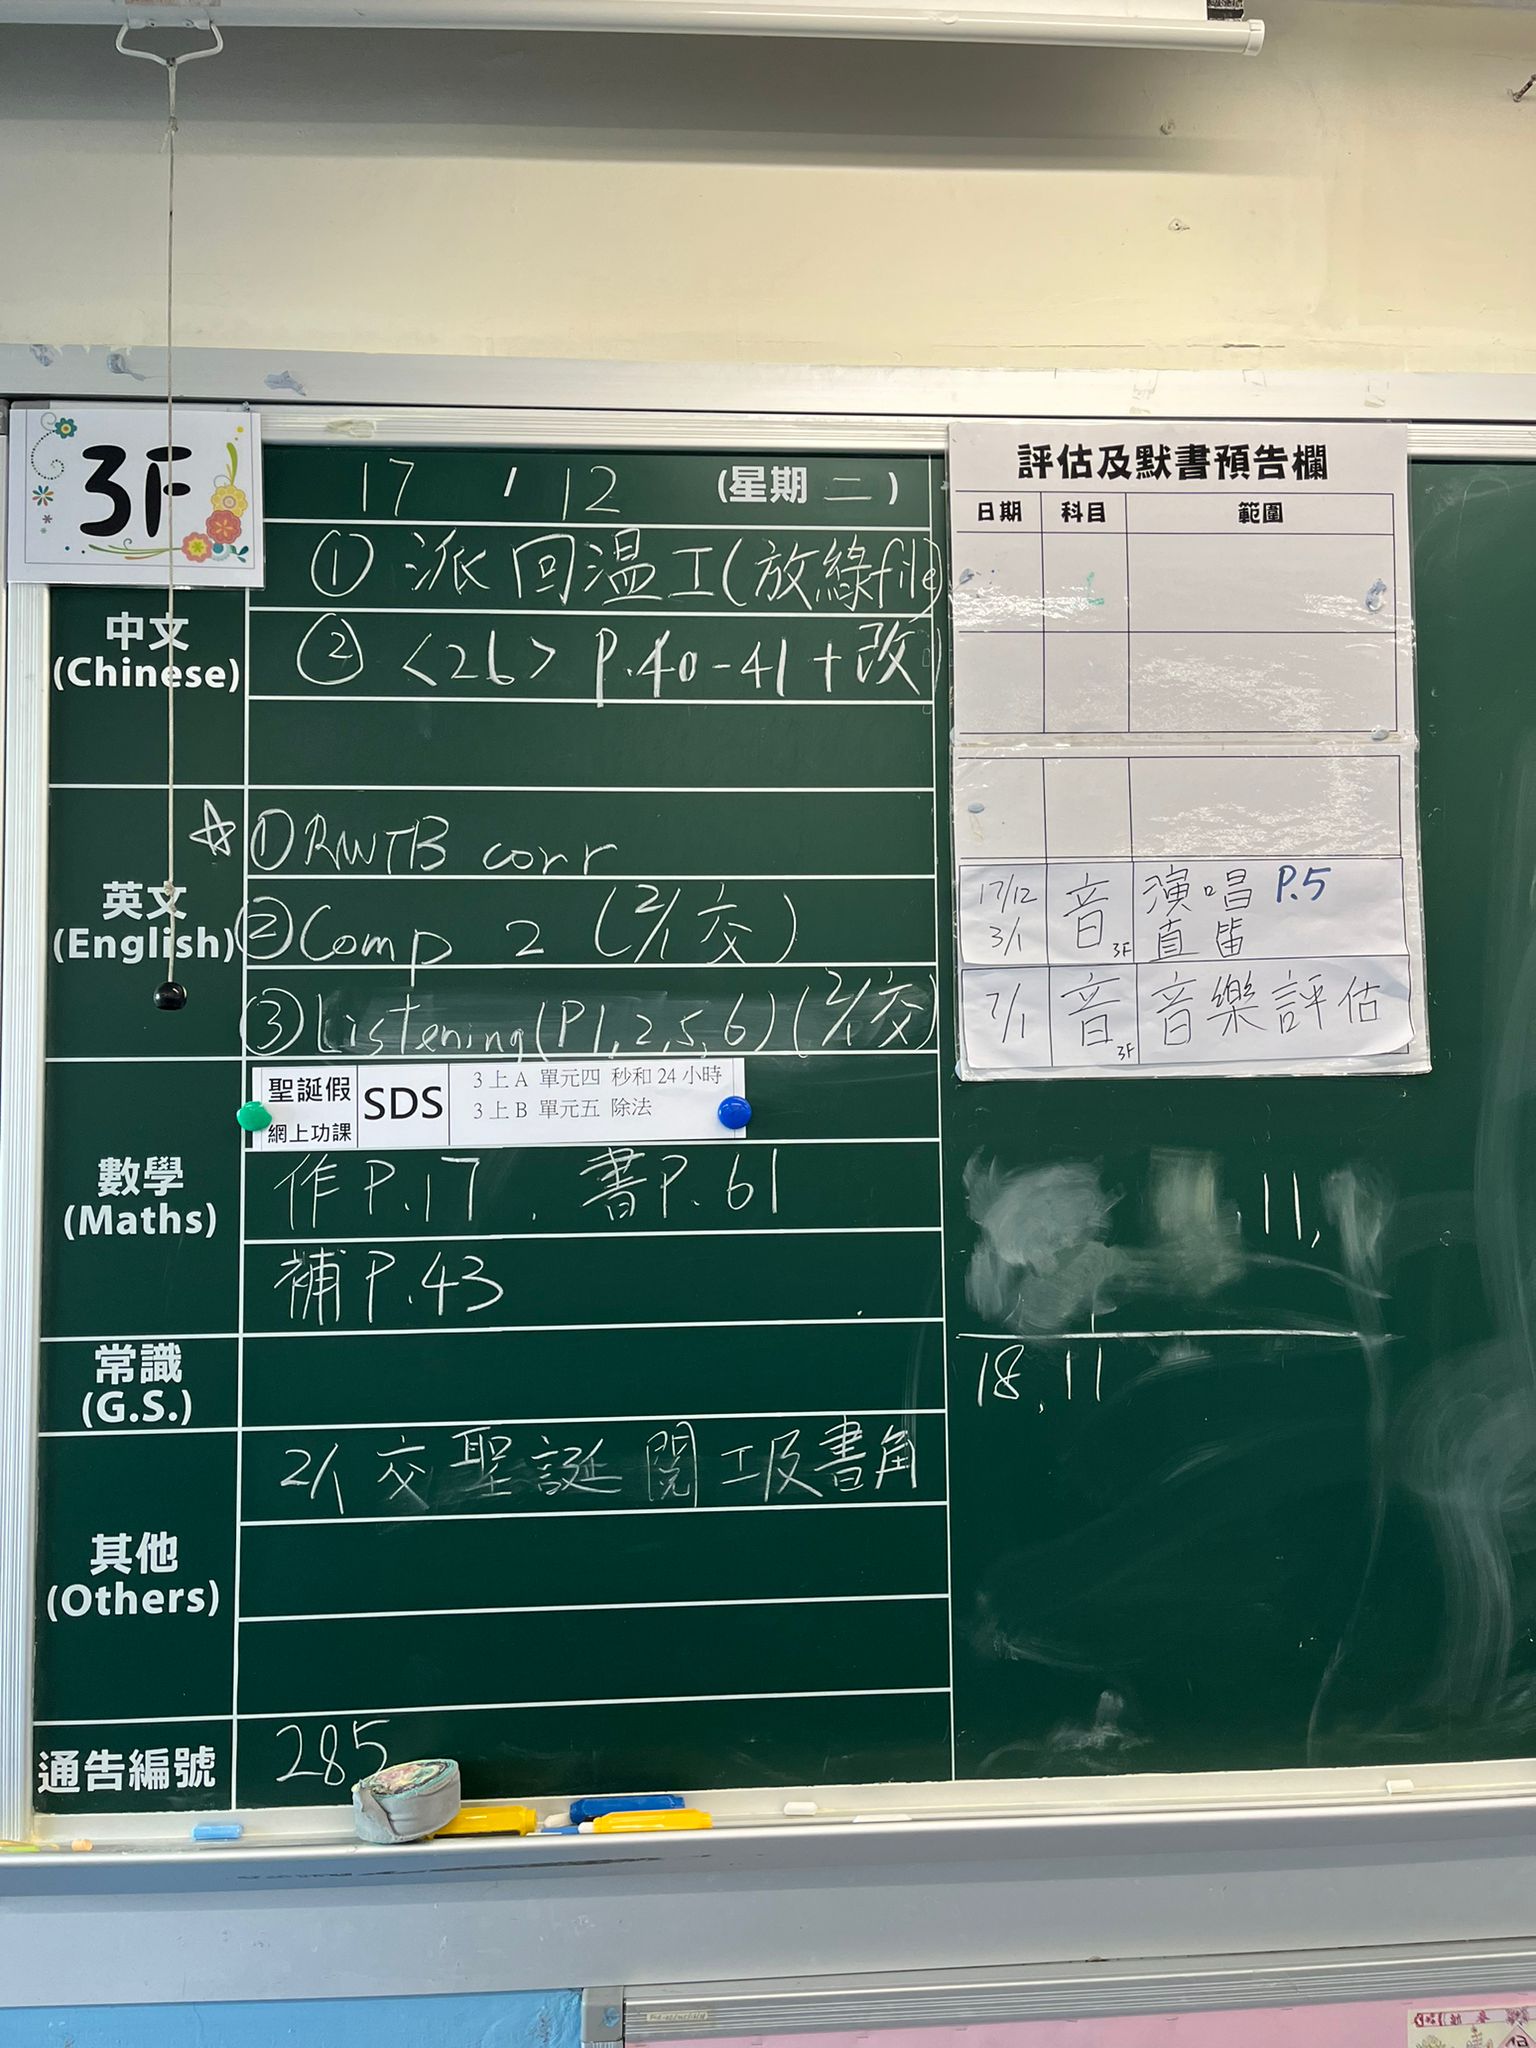 3F
17 / 12 (星期 二)
中文
(Chinese)
① 派回温工(放綠file)
② <26> P.40-41+改
英文
(English)
☆ ① RWTB corr
② Comp 2 (2/1 交)
③ Listening (P1,2,5,6) (2/1 交)
數學
(Maths)
聖誕假
網上功課
SDS
3上A 單元四 秒和24小時
3上B 單元五 除法
作P.17 . 書P.61
補P.43
常識
(G.S.)
其他
(Others)
2/1 交聖誕閱工及書角
通告編號
285
評估及默書預告欄
日期 科目 範圍
17/12 音 演唱 P.5
3/1 3F 直笛
7/1 音 3F 音樂評估
11,
18, 11